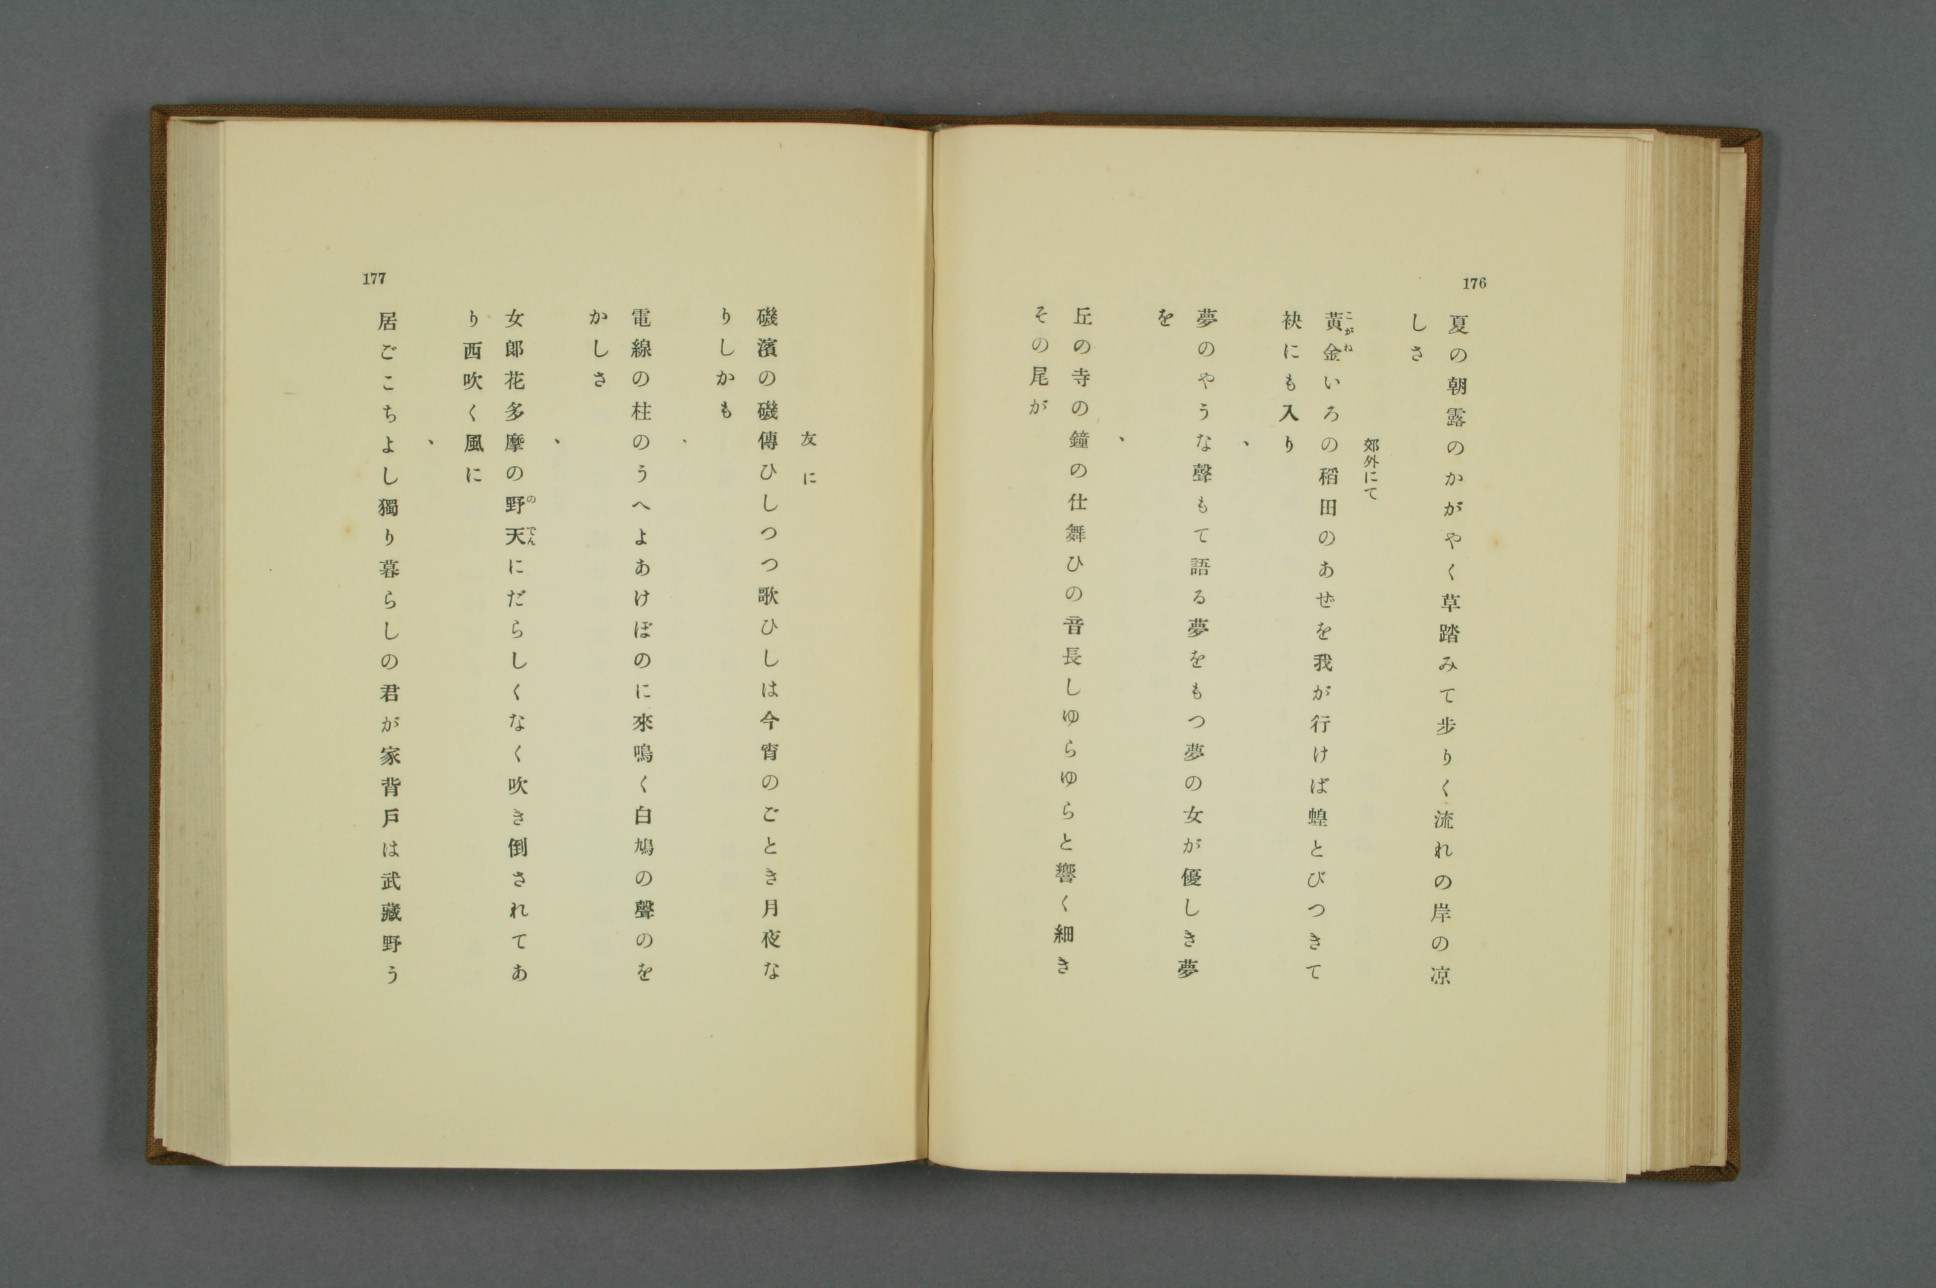 176
夏の朝露のかがやく草踏みて歩りく流れの岸の凉
しさ
郊外にて
黃金いろの稻田のあぜを我が行けば蝗とびつきて
こがね
袂にも入り
、
夢のやうな聲もて語る夢をもつ夢の女が優しき夢
を
、
丘の寺の鐘の仕舞ひの音長しゆらゆらと響く細き
その尾が
友に
磯濱の磯傳ひしつつ歌ひしは今宵のごとき月夜な
りしかも
、
電線の柱のうへよあけぼのに來鳴く白鳩の聲のを
かしさ
、
女郎花多摩の野天にだらしくなく吹き倒されてあ
のでん
り西吹く風に
、
居ごこちよし獨り暮らしの君が家背戶は武藏野う
177